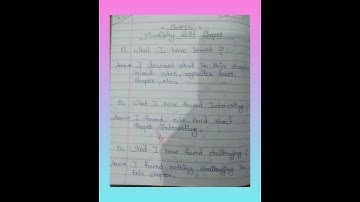 Visualising Solid Shapes
Q. What I have learnt ?
Ans= I learned that in this chapter
about cubes, opposites faces,
shapes, etc.
Q. What I have found Interesting ?
Ans= I found more about
shapes Interesting.
Q. What I have found challenging ?
Ans= I found nothing challenging in
this chapter.